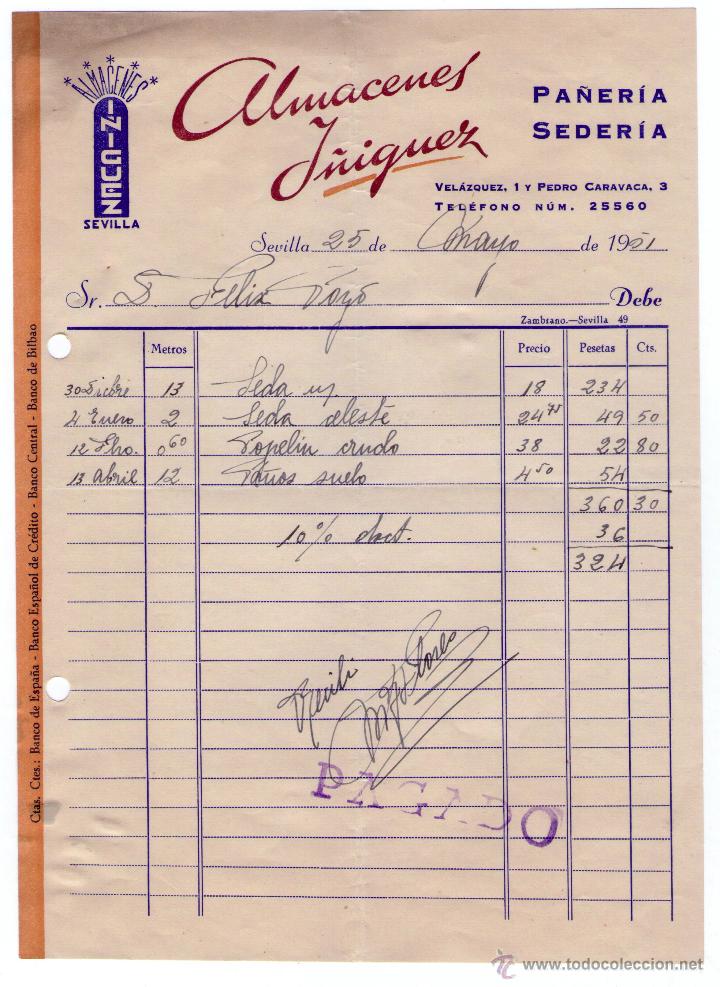 ALMACENES
IÑIGUEZ
SEVILLA
Almacenes
Iñiguez
PAÑERÍA
SEDERÍA
VELÁZQUEZ, 1 Y PEDRO CARAVACA, 3
TELÉFONO NÚM. 25560
Sevilla 25 de Mayo de 1951
Sr. D. Felix Poyó Debe
Zambrano.—Sevilla 49
Metros Precio Pesetas Cts.
30 Dicbre 13 Seda 18 234
4 Enero 2 Seda celeste 24 75 49 50
12 Fbro. 0 60 Popelin crudo 38 22 80
13 Abril 12 Paños suelo 4 50 54
360 30
10% dsct. 36
324
Recibi
Flores
PAGADO
Ctas. Ctes.: Banco de España - Banco Español de Crédito - Banco Central - Banco de Bilbao
www.todocoleccion.net